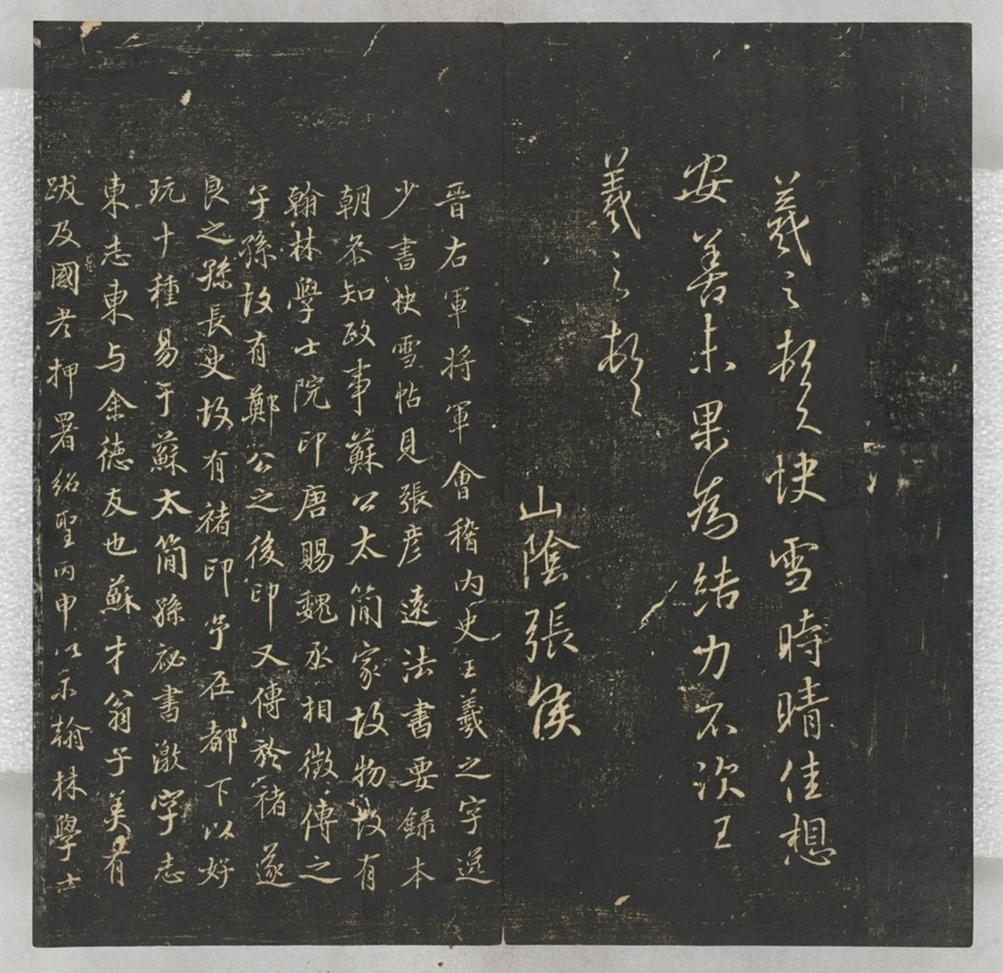 羲之頓首快雪時晴佳想
安善未果為結力不次王
羲之頓首
山陰張侯
晉右軍將軍會稽內史王羲之字逸
少書快雪帖見張彥遠法書要錄本
朝參知政事蘇公太簡家故物故有
翰林學士院印唐賜魏丞相徵傳之
子孫故有鄭公之後印又傳於褚遂
良之孫長史故有褚印予在都下以好
玩十種易于蘇太簡孫祕書激字志
東志東与余德友也蘇才翁子美有
跋及國老押署紹聖丙申以示翰林學士